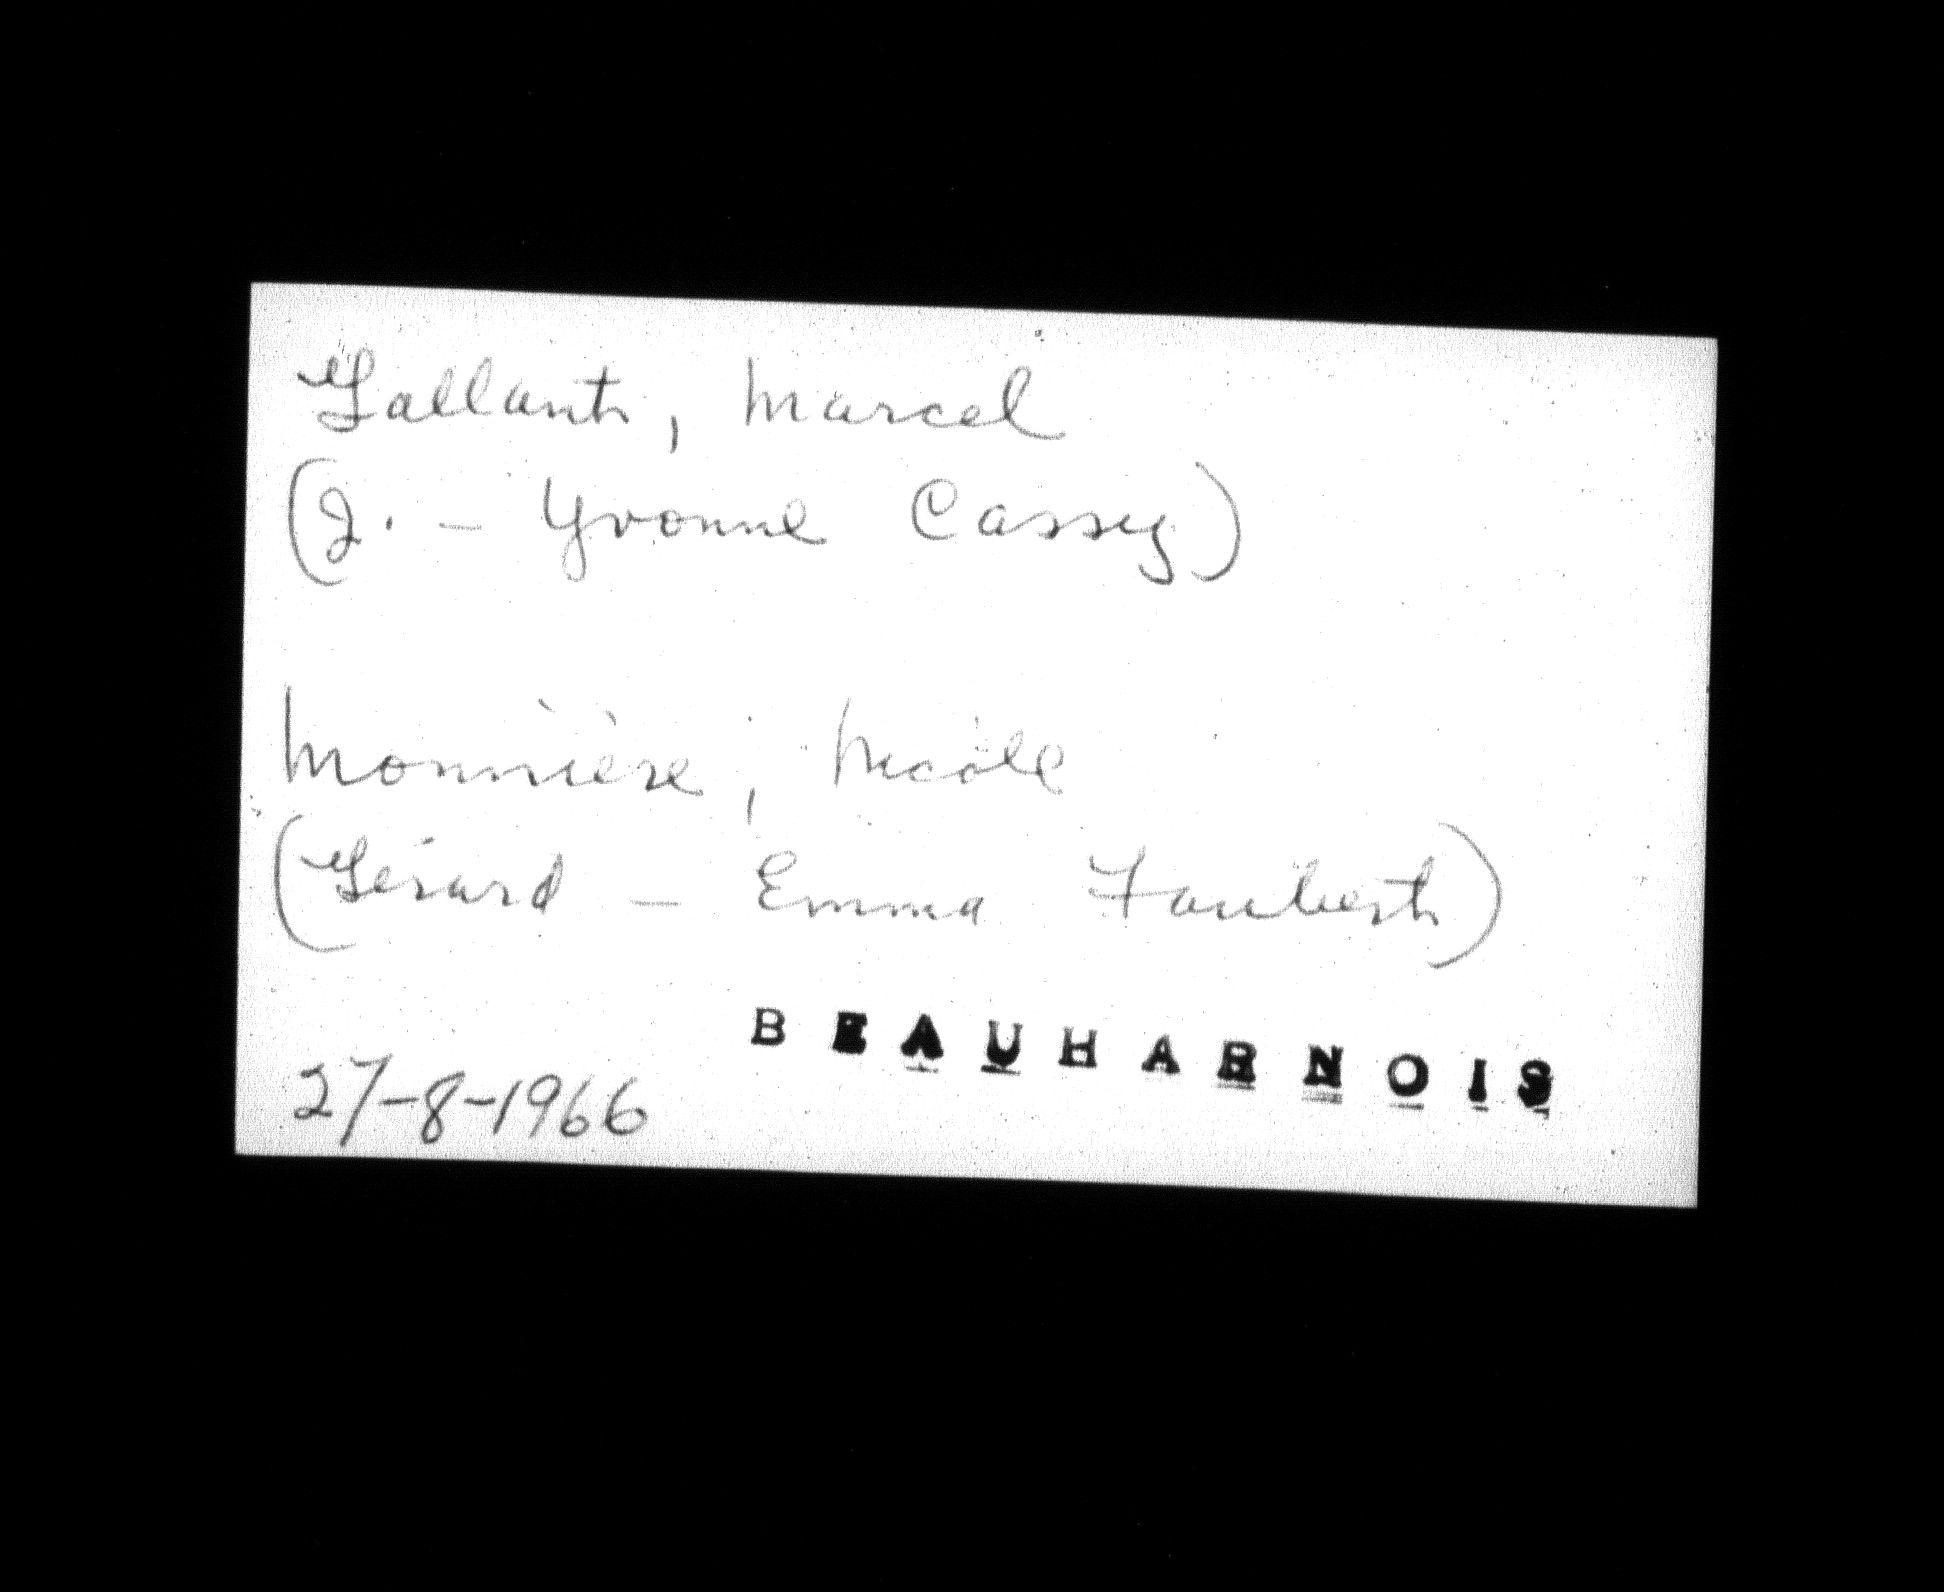 Gallant, Marcel
(J. - Yvonne Cassey)
Monnière, Nicole
(Gérard - Emma Faubert)
BEAUHARNOIS
27-8-1966